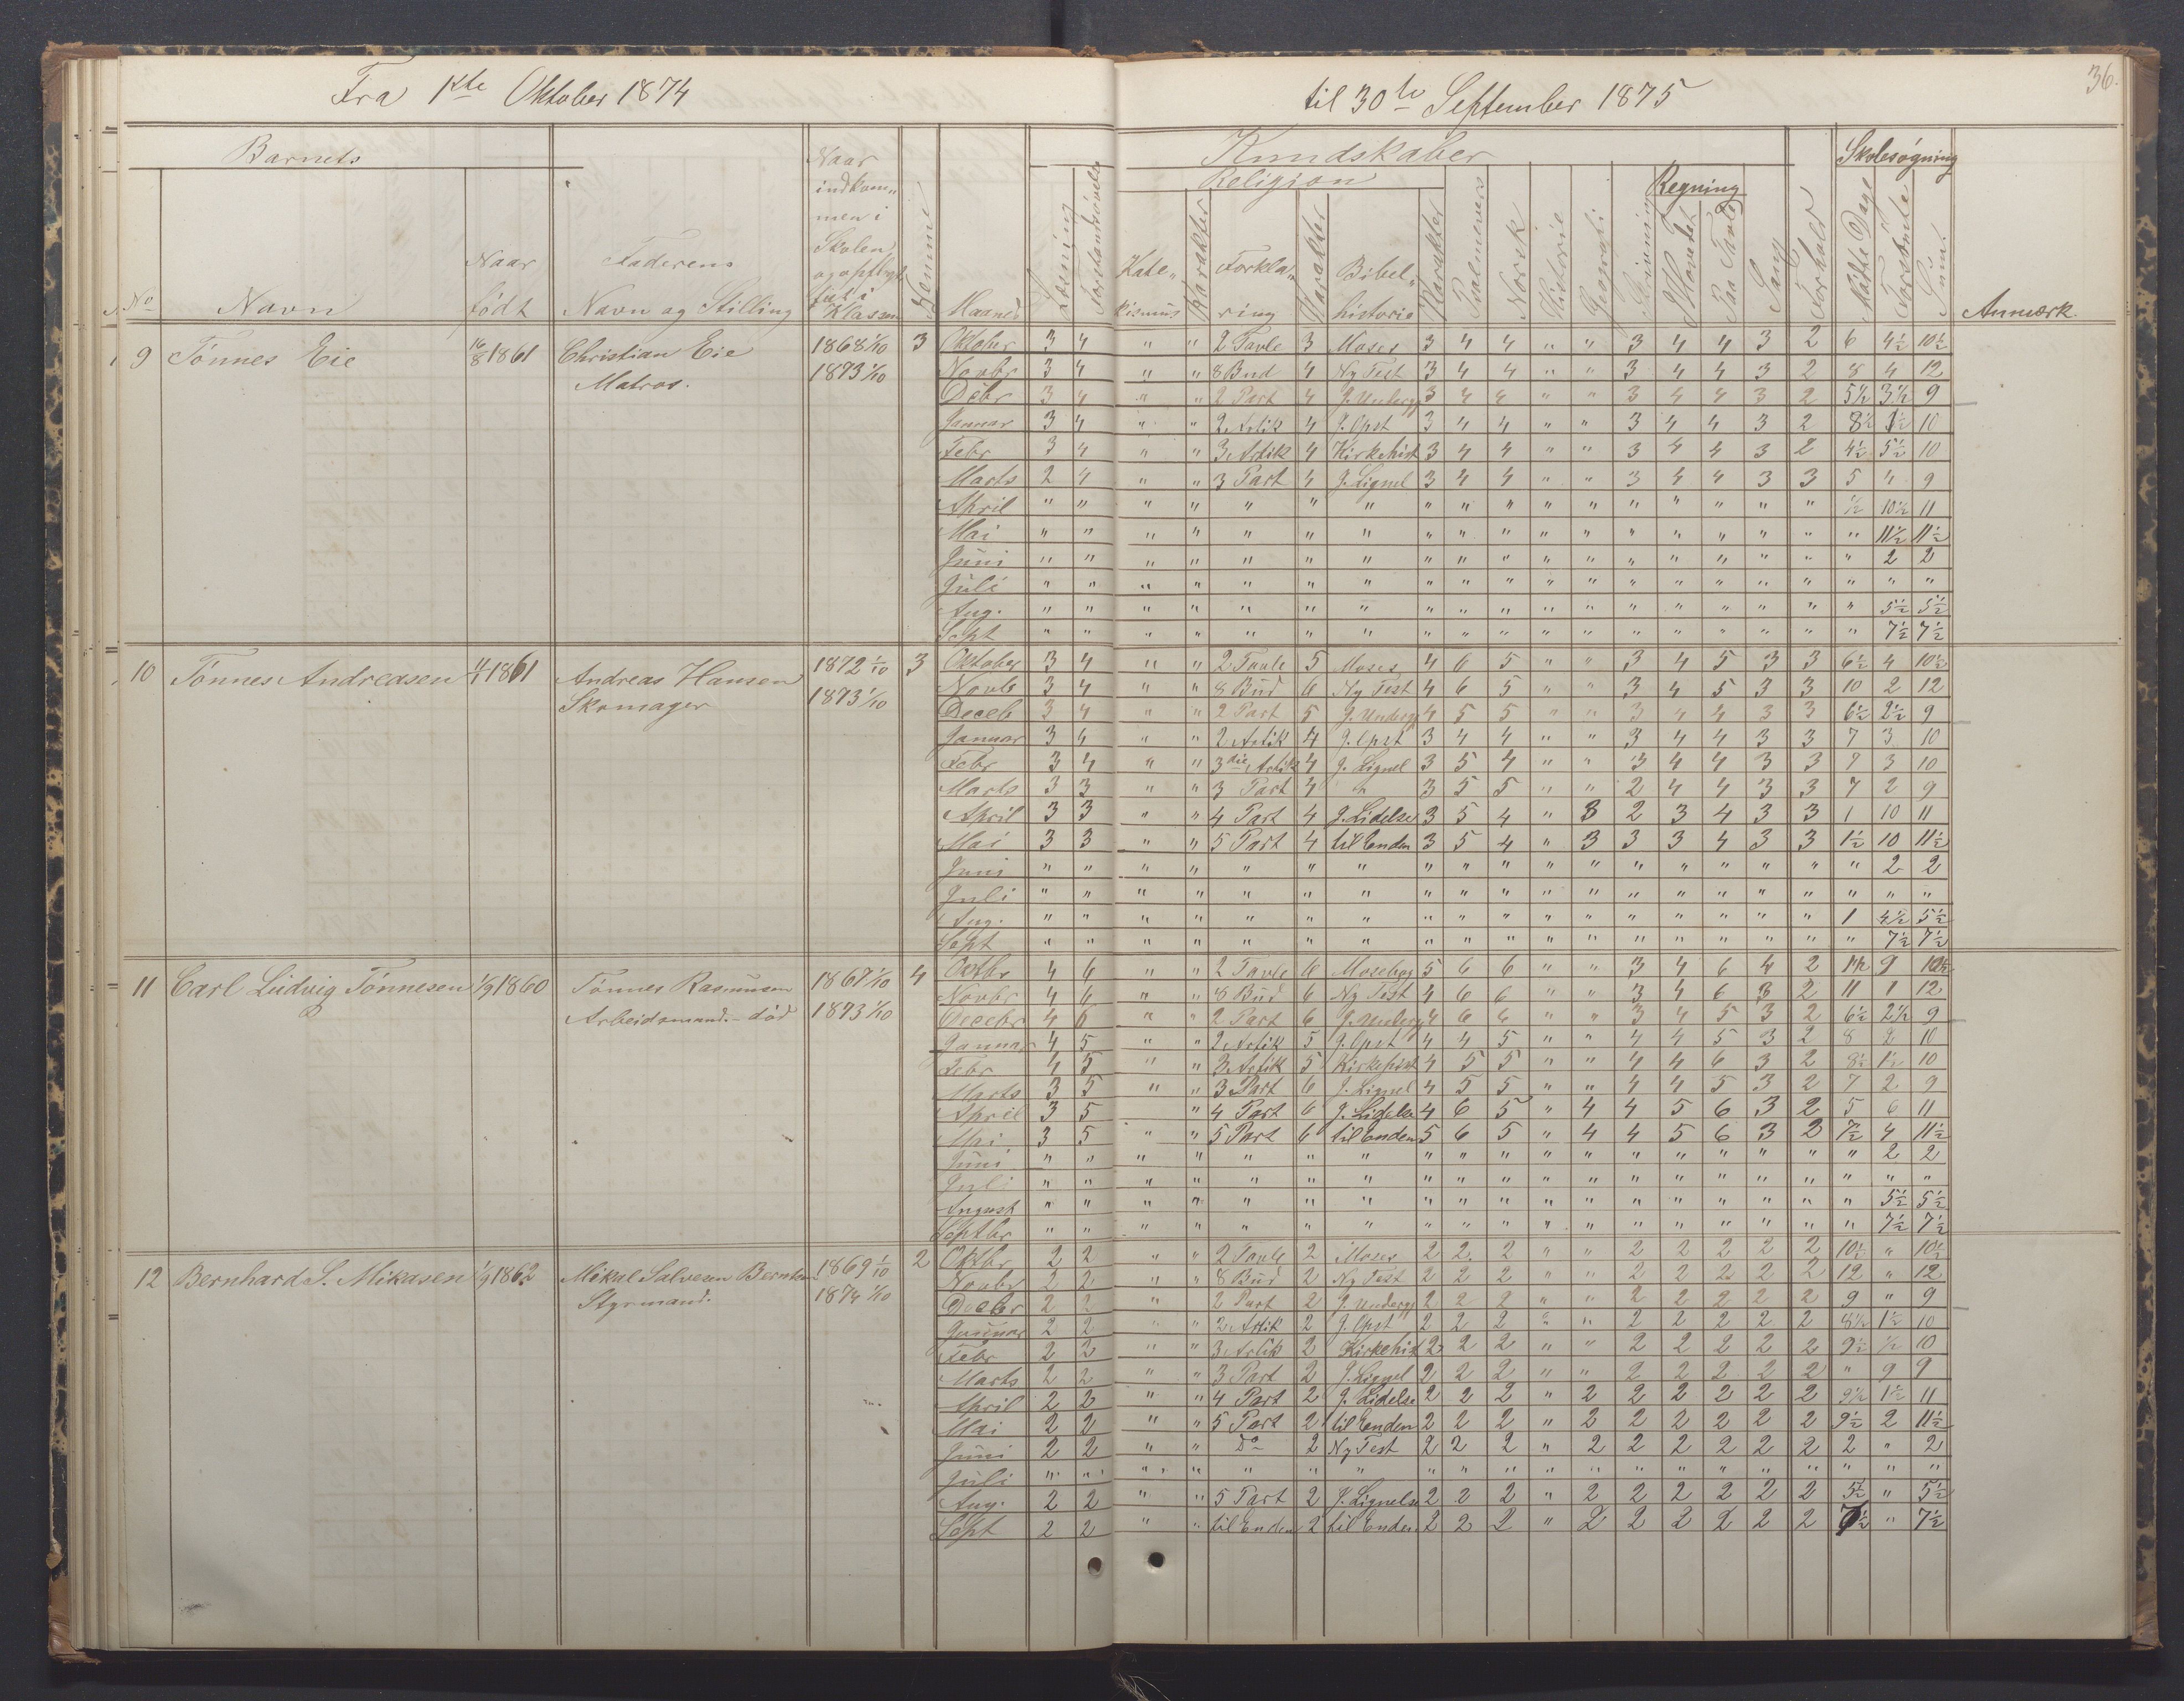 Fra 1ste Oktober 1874 til 30te September 1875
36.
Barnets
Naar indkom„ men i Skolen og opflyt tet i Klassen
Evne
Kundskaber
Skolesøgning
Religion
Regning
No Navn Naar født Faderens Navn og Stilling Maaned Læsning Forstandsøvelse Kate„ kismus Karakter Forkla„ ring Karakter Bibel„ historie Karakter Psalmevers Norsk Historie Geografi Skrivning I Hovedet Paa Tavle Sang Forhold Mødte Dage Forsømte Sum Anmærk.
9 Tønnes Eie 16/8 1861 Christian Eie 1868 1/10 3 Oktober 3 4 " " 2 Tavle 3 Moses 3 4 4 " " 3 4 4 3 2 6 4½ 10½
Matros. 1873 1/10 Novbr 3 4 " " 8 Bud 4 Ny Test 3 4 4 " " 3 4 4 3 2 8 4 12
Debr 3 4 " " 2 Part 4 J. Undergj 3 4 4 " " 3 4 4 3 2 5½ 3½ 9
Januar 3 4 " " 2 Artik 4 J. Opst 3 4 4 " " 3 4 4 3 2 8½ 1½ 10
Febr 3 4 " " 3 Artik 4 Kirkehist 3 4 4 " " 3 4 4 3 2 4½ 5½ 10
Marts 2 4 " " 3 Part 4 J. Lignel 3 4 4 " " 3 4 4 3 3 5 4 9
April " " " " " " " " " " " " " " " " " ½ 10½ 11
Mai " " " " " " " " " " " " " " " " " " 11½ 11½
Juni " " " " " " " " " " " " " " " " " " 2 2
Juli " " " " " " " " " " " " " " " " " " " "
Aug. " " " " " " " " " " " " " " " " " " 5½ 5½
Sept " " " " " " " " " " " " " " " " " " 7½ 7½
10 Tønnes Andreasen 4/1 1861 Andreas Hansen 1872 1/10 3 Oktober 3 4 " " 2 Tavle 5 Moses 4 6 5 " " 3 4 5 3 3 6½ 4 10½
Skomager 1873 1/10 Novb 3 4 " " 8 Bud 6 Ny Test 4 6 5 " " 3 4 5 3 3 10 2 12
Deceb 3 4 " " 2 Part 5 J. Undergj 4 5 5 " " 3 4 4 3 3 6½ 2½ 9
Januar 3 4 " " 2 Artik 4 J. Opst 3 4 4 " " 3 4 4 3 3 7 3 10
Febr 3 4 " " 3die Artik 4 J. Lignel 3 5 4 " " 3 4 4 3 3 7 3 10
Marts 3 3 " " 3 Part 4 " 3 5 5 " " 2 4 4 3 3 7 2 9
April 3 3 " " 4 Part 4 J. Lidelse 3 5 4 " 3 2 3 4 3 3 1 10 11
Mai 3 3 " " 5 Part 4 til Enden 3 5 4 " 3 3 3 4 3 3 1½ 10 11½
Juni " " " " " " " " " " " " " " " " " " 2 2
Juli " " " " " " " " " " " " " " " " " " " "
Aug. " " " " " " " " " " " " " " " " " 1 4½ 5½
Sept " " " " " " " " " " " " " " " " " " 7½ 7½
11 Carl Ludvig Tønnesen 1/9 1860 Tønnes Rasmussen 1867 1/10 4 Octbr 4 6 " " 2 Tavle 6 Mosebog 5 6 6 " " 3 4 6 4 2 1½ 9 10½
Arbeidsmand. - død 1873 1/10 Novbr 4 6 " " 8 Bud 6 Ny Test 4 6 6 " " 3 4 6 3 2 11 1 12
Decebr 4 6 " " 2 Part 6 J. Undergj 4 6 6 " " 3 4 5 3 2 6½ 2½ 9
Januar 4 5 " " 2 Artik 5 J. Opst 4 4 5 " " 4 4 5 3 2 8 2 10
Febr 4 5 " " 3 Artik 5 Kirkehist 4 5 5 " " 4 4 6 3 2 8½ 1½ 10
Marts 3 5 " " 3 Part 6 J. Lignel 4 5 5 " " 4 4 5 3 2 7 2 9
April 3 5 " 4 Part 6 J. Lidelse 4 6 5 " 4 4 5 6 3 2 5 6 11
Mai 3 5 " " 5 Part 6 til Enden 5 6 5 " 4 4 5 6 3 2 7½ 4 11½
Juni " " " " " " " " " " " " " " " " " " 2 2
Juli " " " " " " " " " " " " " " " " " " " "
August " " " " " " " " " " " " " " " " " " 5½ 5½
Septbr " " " " " " " " " " " " " " " " " " 7½ 7½
12 Bernhard S. Mikasen 1/9 1862 Mikal Salvesen 1869 1/10 2 Oktbr 2 2 " " 2 Tavle 2 Moses 2 2 2 " " 2 2 2 2 2 10½ " 10½
Styrmand. 1874 1/10 Novbr 2 2 " " 8 Bud 2 Ny Test 2 2 2 " " 2 2 2 2 2 12 " 12
Decbr 2 2 " 2 Part 2 J. Undergj 2 2 2 " " 2 2 2 2 2 9 " 9
Januar 2 2 " " 2 Artik 2 J. Opst 2 2 2 " " 2 2 2 2 2 8½ 1½ 10
Febr 2 2 " " 3 Artik 2 Kirkehist 2 2 2 " " 2 2 2 2 2 9½ ½ 10
Marts 2 2 " " 3 Part 2 J. Lignel 2 2 2 " " 2 2 2 2 2 " 9 9
April 2 2 " " 4 Part 2 J. Lidelse 2 2 2 " 2 2 2 2 2 2 9½ 1½ 11
Mai 2 2 " " 5 Part 2 til Enden 2 2 2 " 2 2 2 2 2 2 9½ 2 11½
Juni 2 2 " " Do 2 Ny Test 2 2 2 " 2 2 2 2 2 2 2 " 2
Juli " " " " " " " " " " " " " " " " " " " "
Aug. 2 2 " " 5 Part 2 J. Lignelse 2 2 2 " 2 2 2 2 2 2 5½ " 5½
Sept 2 2 " " til Enden 2 til Enden 2 2 2 " 2 2 2 2 2 2 7½ " 7½